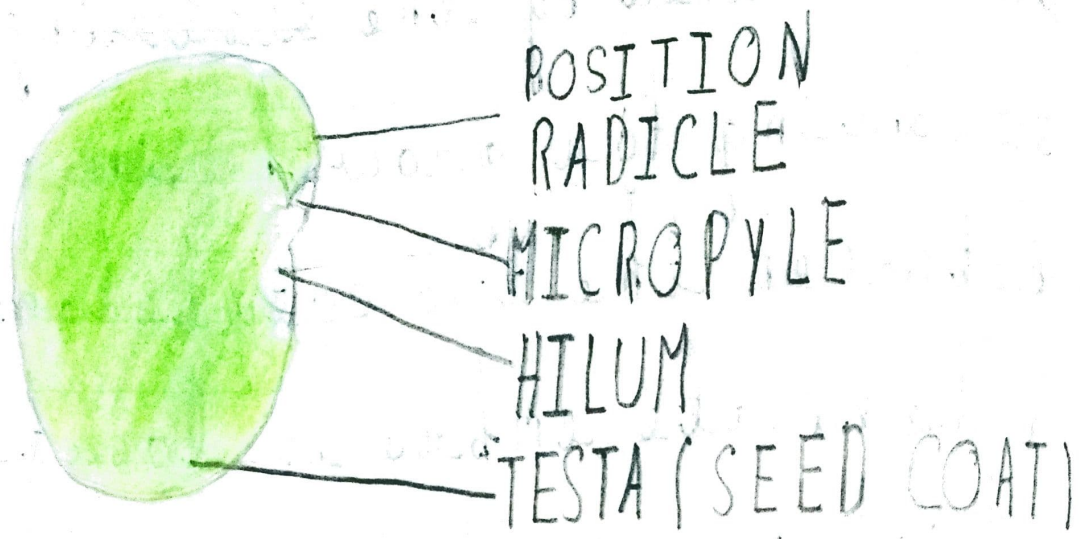 POSITION
RADICLE
MICROPYLE
HILUM
TESTA (SEED COAT)